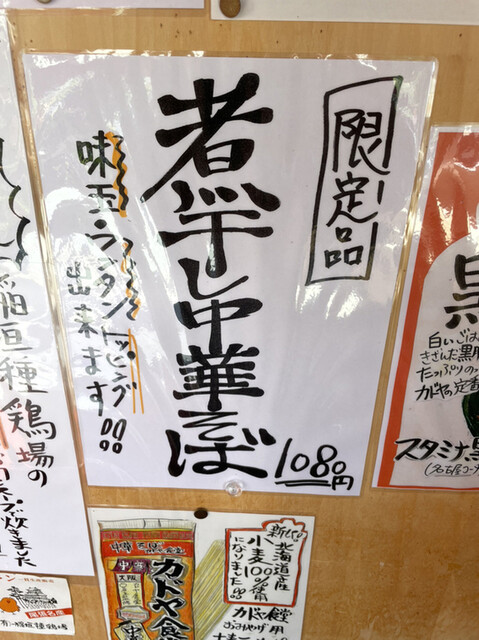 限定品
煮干し中華そば
1080円
味玉
トッピング
出来ます!!
稲垣種
鶏場の
炊きました
白いごは
きざんだ黒
たっぷりの
カドヤの定番
スタミナ黒
(名古屋コー
中華
大阪
カドヤ食
新しく
北海道産
小麦100%使用
になりました
カドヤ食堂
おみやげ用
尾張名産